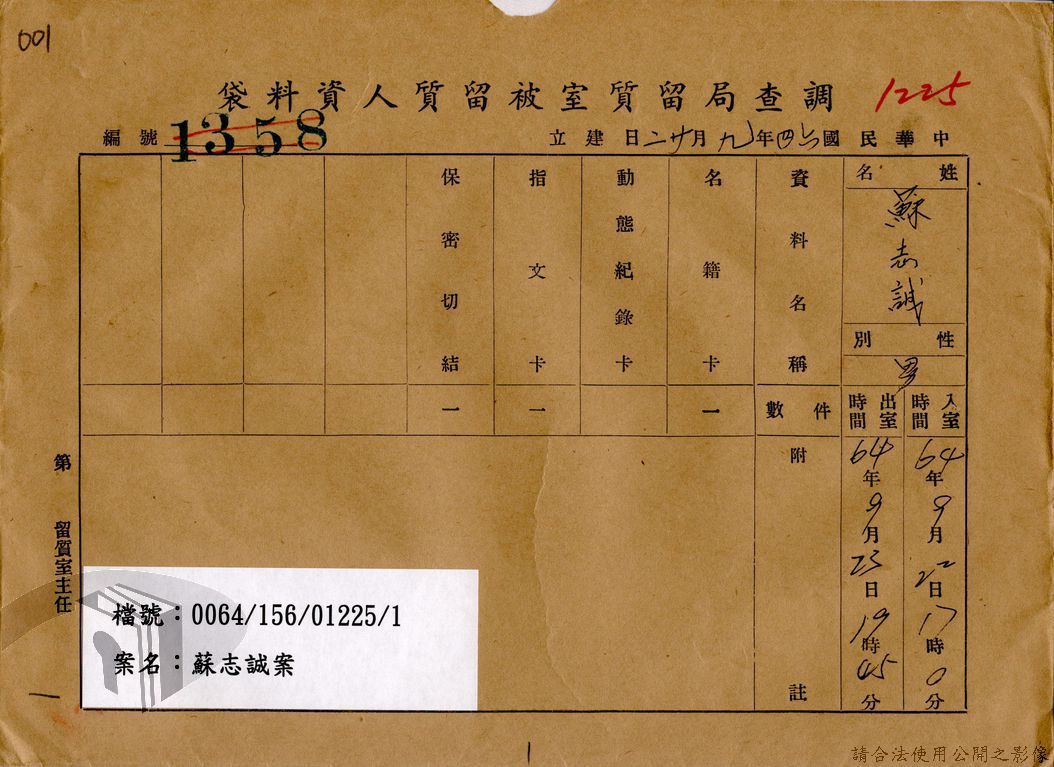 001
調查局留質室被留質人資料袋
1225
中華民國六四年九月廿二日建立
編號 1358
姓名
蘇志誠
性別
男
入室時間
64年9月22日17時0分
出室時間
64年9月23日19時45分
資料名稱
件數
附註
名籍卡
一
動態紀錄卡
指文卡
一
保密切結
一
第
留質室主任
檔號：0064/156/01225/1
案名：蘇志誠案
請合法使用公開之影像